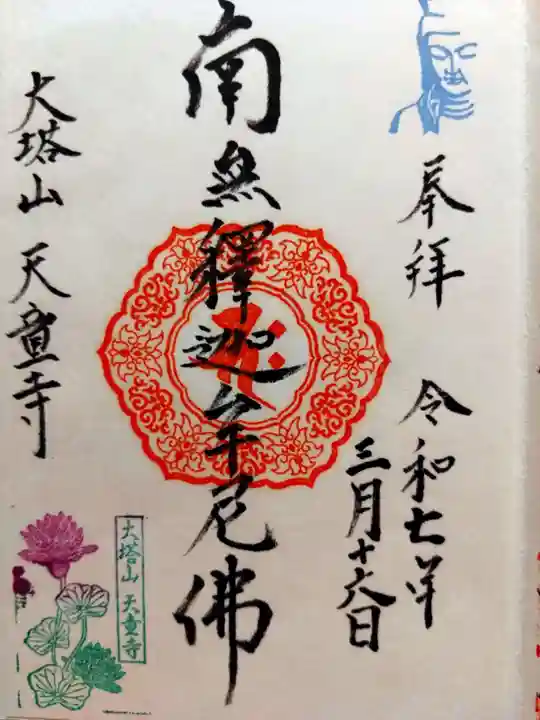 奉拝 令和七年
三月十六日
南無釋迦牟尼佛
大塔山 天童寺
大塔山 天童寺